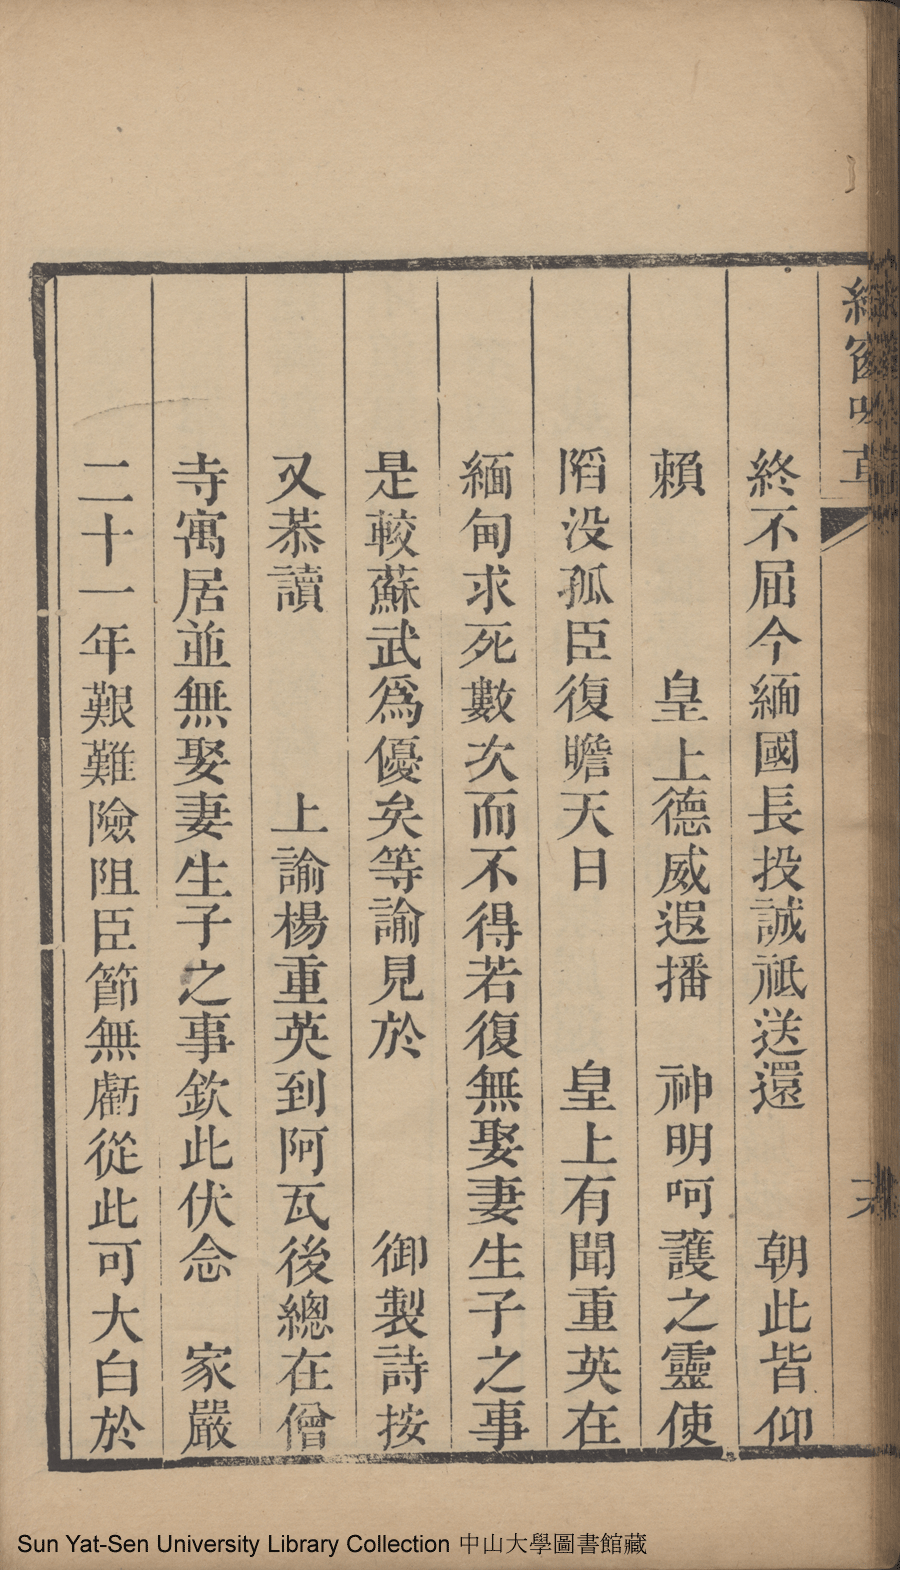 終不屈今緬國長投誠祇送還　朝此皆仰
賴　皇上德威遐播　神明呵護之靈使
陷没孤臣復瞻天日　皇上有聞重英在
緬甸求死數次而不得若復無娶妻生子之事
是較蘇武爲優矣等諭見於　御製詩按
又恭讀　上諭楊重英到阿瓦後總在僧
寺寓居並無娶妻生子之事欽此伏念　家嚴
二十一年艱難險阻臣節無虧從此可大白於
Sun Yat-Sen University Library Collection 中山大學圖書館藏